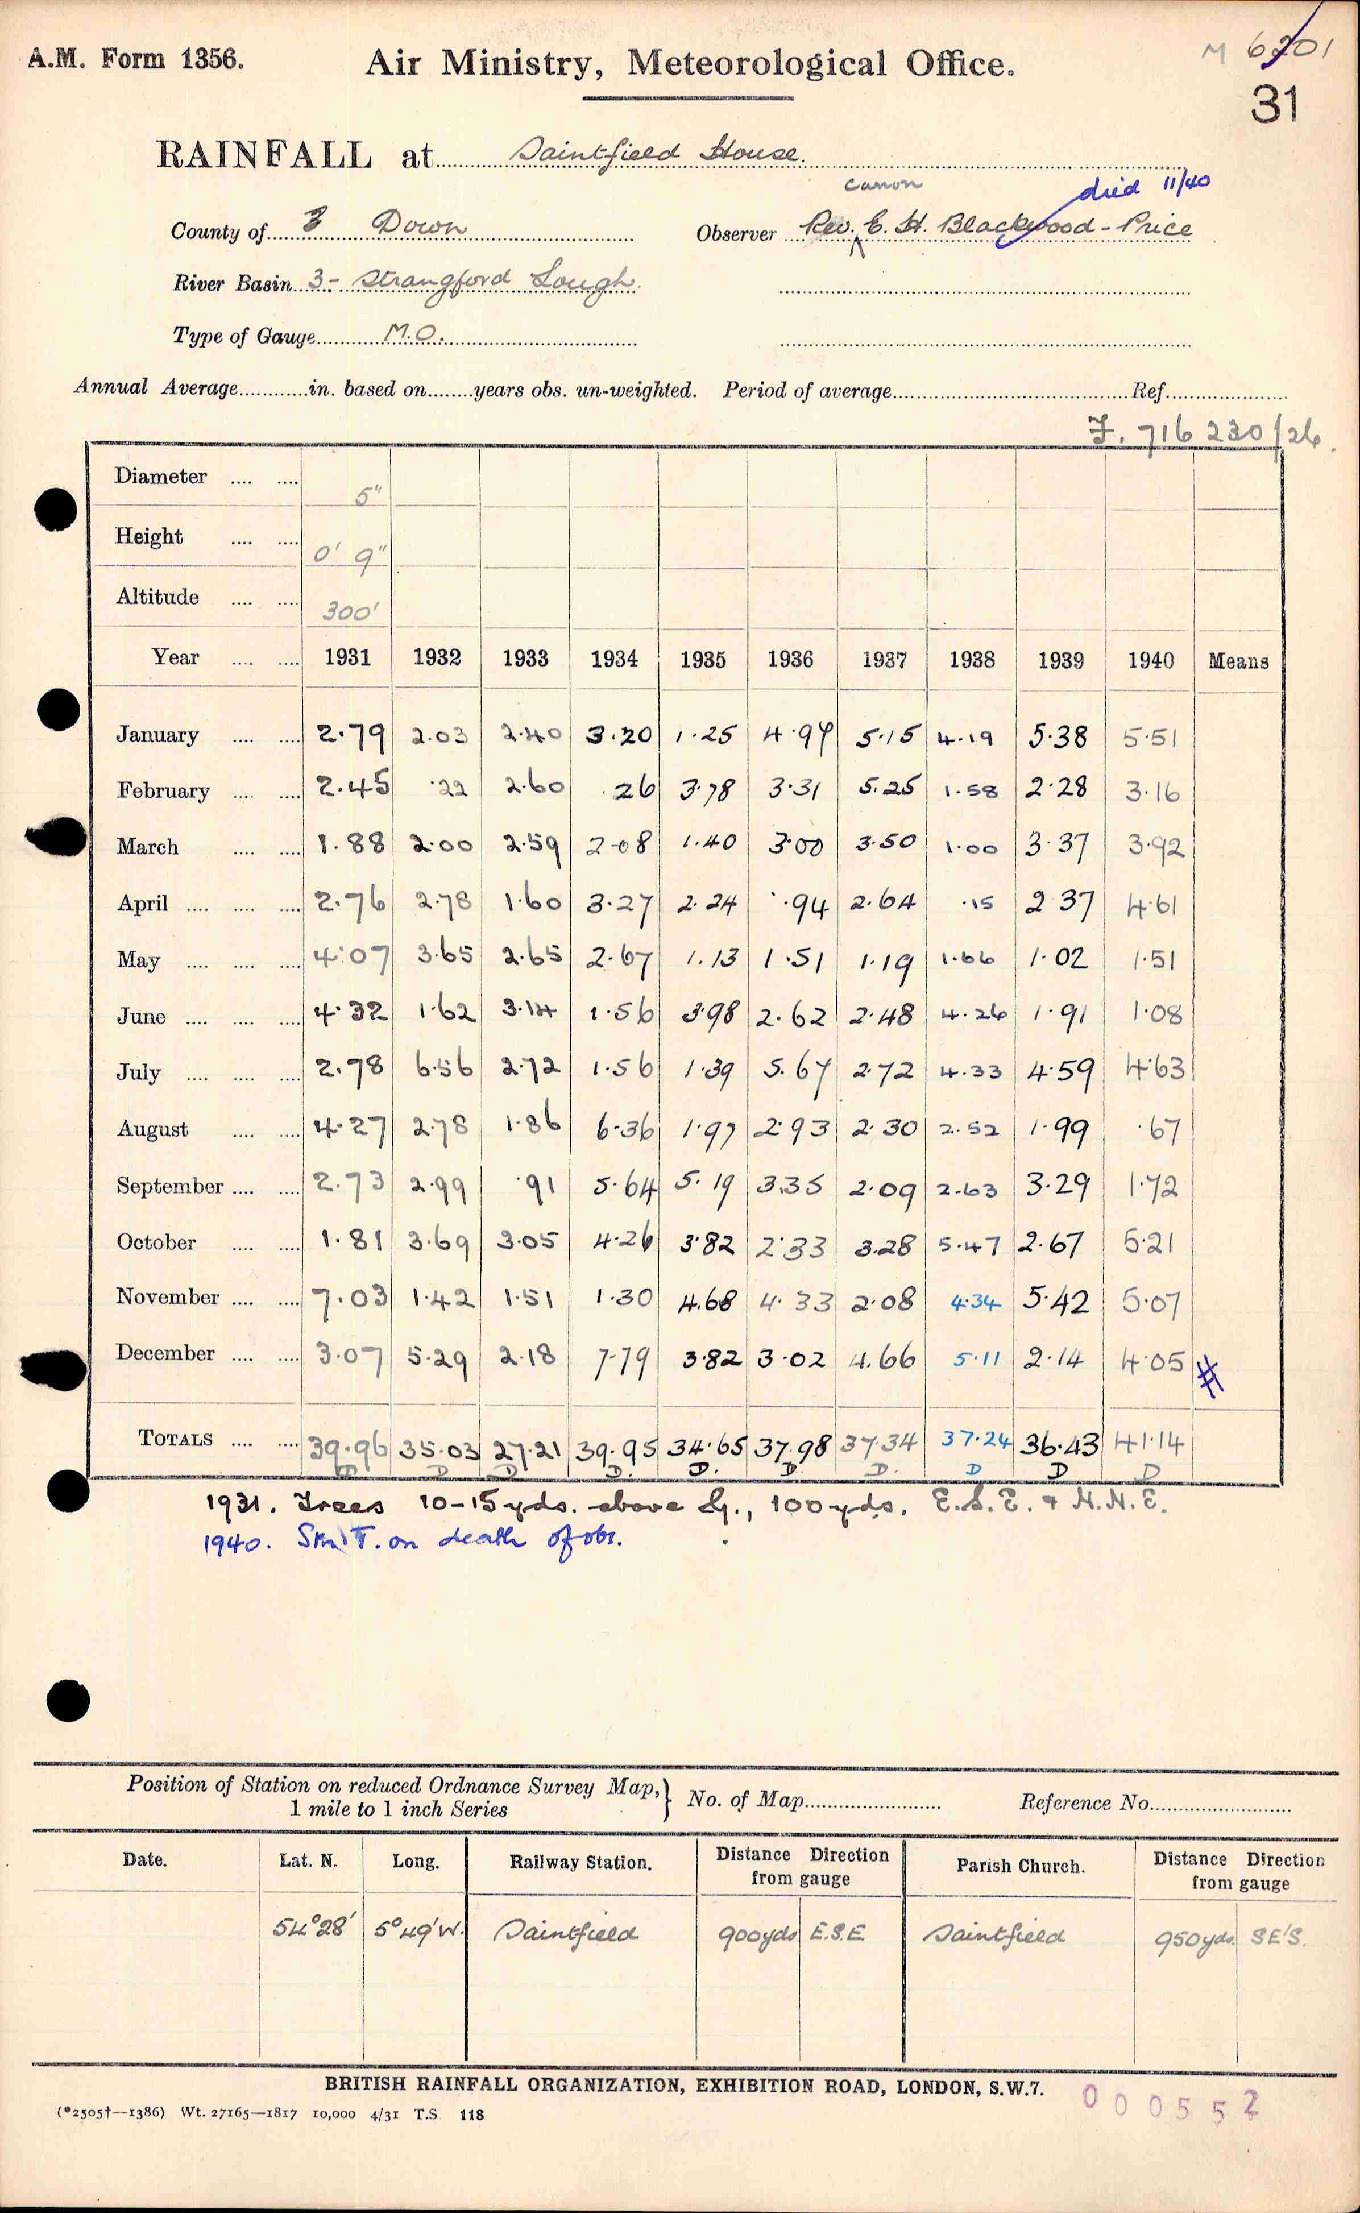 A.M. Form 1356.
Air Ministry, Meteorological Office.
M 6201
31
RAINFALL at Saintfield House.
Canon
died 11/40
County of 3 Down
Observer Rev. E. H. Blackwood-Price
River Basin 3- Strangford Lough.
Type of Gauge M.O.
Annual Average............in. based on........years obs. un-weighted. Period of average................Ref................
716 230/26.
Diameter .... .... 5"
Height .... .... 0' 9"
Altitude .... .... 300'
Year .... .... 1931 1932 1933 1934 1935 1936 1937 1938 1939 1940 Means
January .... .... 2.79 2.03 2.40 3.20 1.25 4.97 5.15 4.19 5.38 5.51
February .... .... 2.45 .22 2.60 .26 3.78 3.31 5.25 1.58 2.28 3.16
March .... .... 1.88 2.00 2.59 2.08 1.40 3.00 3.50 1.00 3.37 3.92
April .... .... .... 2.76 2.78 1.60 3.27 2.24 .94 2.64 .15 2.37 4.61
May .... .... .... 4.07 3.65 2.65 2.67 1.13 1.51 1.19 1.66 1.02 1.51
June .... .... .... 4.32 1.62 3.14 1.56 3.98 2.62 2.48 4.26 1.91 1.08
July .... .... .... 2.78 6.56 2.72 1.56 1.39 5.67 2.72 4.33 4.59 4.63
August .... .... 4.27 2.78 1.86 6.36 1.97 2.93 2.30 2.52 1.99 .67
September .... .... 2.73 2.99 .91 5.64 5.19 3.35 2.09 2.63 3.29 1.72
October .... .... 1.81 3.69 3.05 4.26 3.82 2.33 3.28 5.47 2.67 5.21
November .... .... 7.03 1.42 1.51 1.30 4.68 4.33 2.08 4.34 5.42 5.07
December .... .... 3.07 5.29 2.18 7.79 3.82 3.02 4.66 5.11 2.14 4.05 #
TOTALS .... .... 39.96 35.03 27.21 39.95 34.65 37.98 37.34 37.24 36.43 41.14
D D D D. D. D. D. D D D
1931. Trees 10-15 yds. above g., 100 yds. E.S.E. & N.N.E.
1940. on death of obs.
Position of Station on reduced Ordnance Survey Map, } No. of Map........................ Reference No........................
1 mile to 1 inch Series
Date. Lat. N. Long. Railway Station. Distance Direction from gauge Parish Church. Distance Direction from gauge
54°28' 5°49'W. Saintfield 900yds E.S.E. Saintfield 950yds. SE'S.
BRITISH RAINFALL ORGANIZATION, EXHIBITION ROAD, LONDON, S.W.7.
(*2505†—1386) Wt. 27165—1817 10,000 4/31 T.S. 118
000552